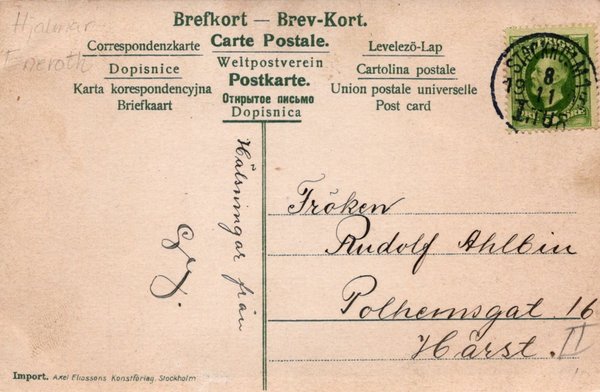 Hjalmar
Eneroth
Brefkort — Brev-Kort.
Correspondenzkarte
Carte Postale.
Levelezö-Lap
Dopisnice
Weltpostverein
Cartolina postale
Karta korespondencyjna
Postkarte.
Union postale universelle
Briefkaart
Открытое письмо
Post card
Dopisnica
STOCKHOLM
8
11
Hälsningar från
Fröken
Rudolf Ahlbin
Polhemsgat 16
Härst. II
Import. Axel Eliassons Konstförlag. Stockholm